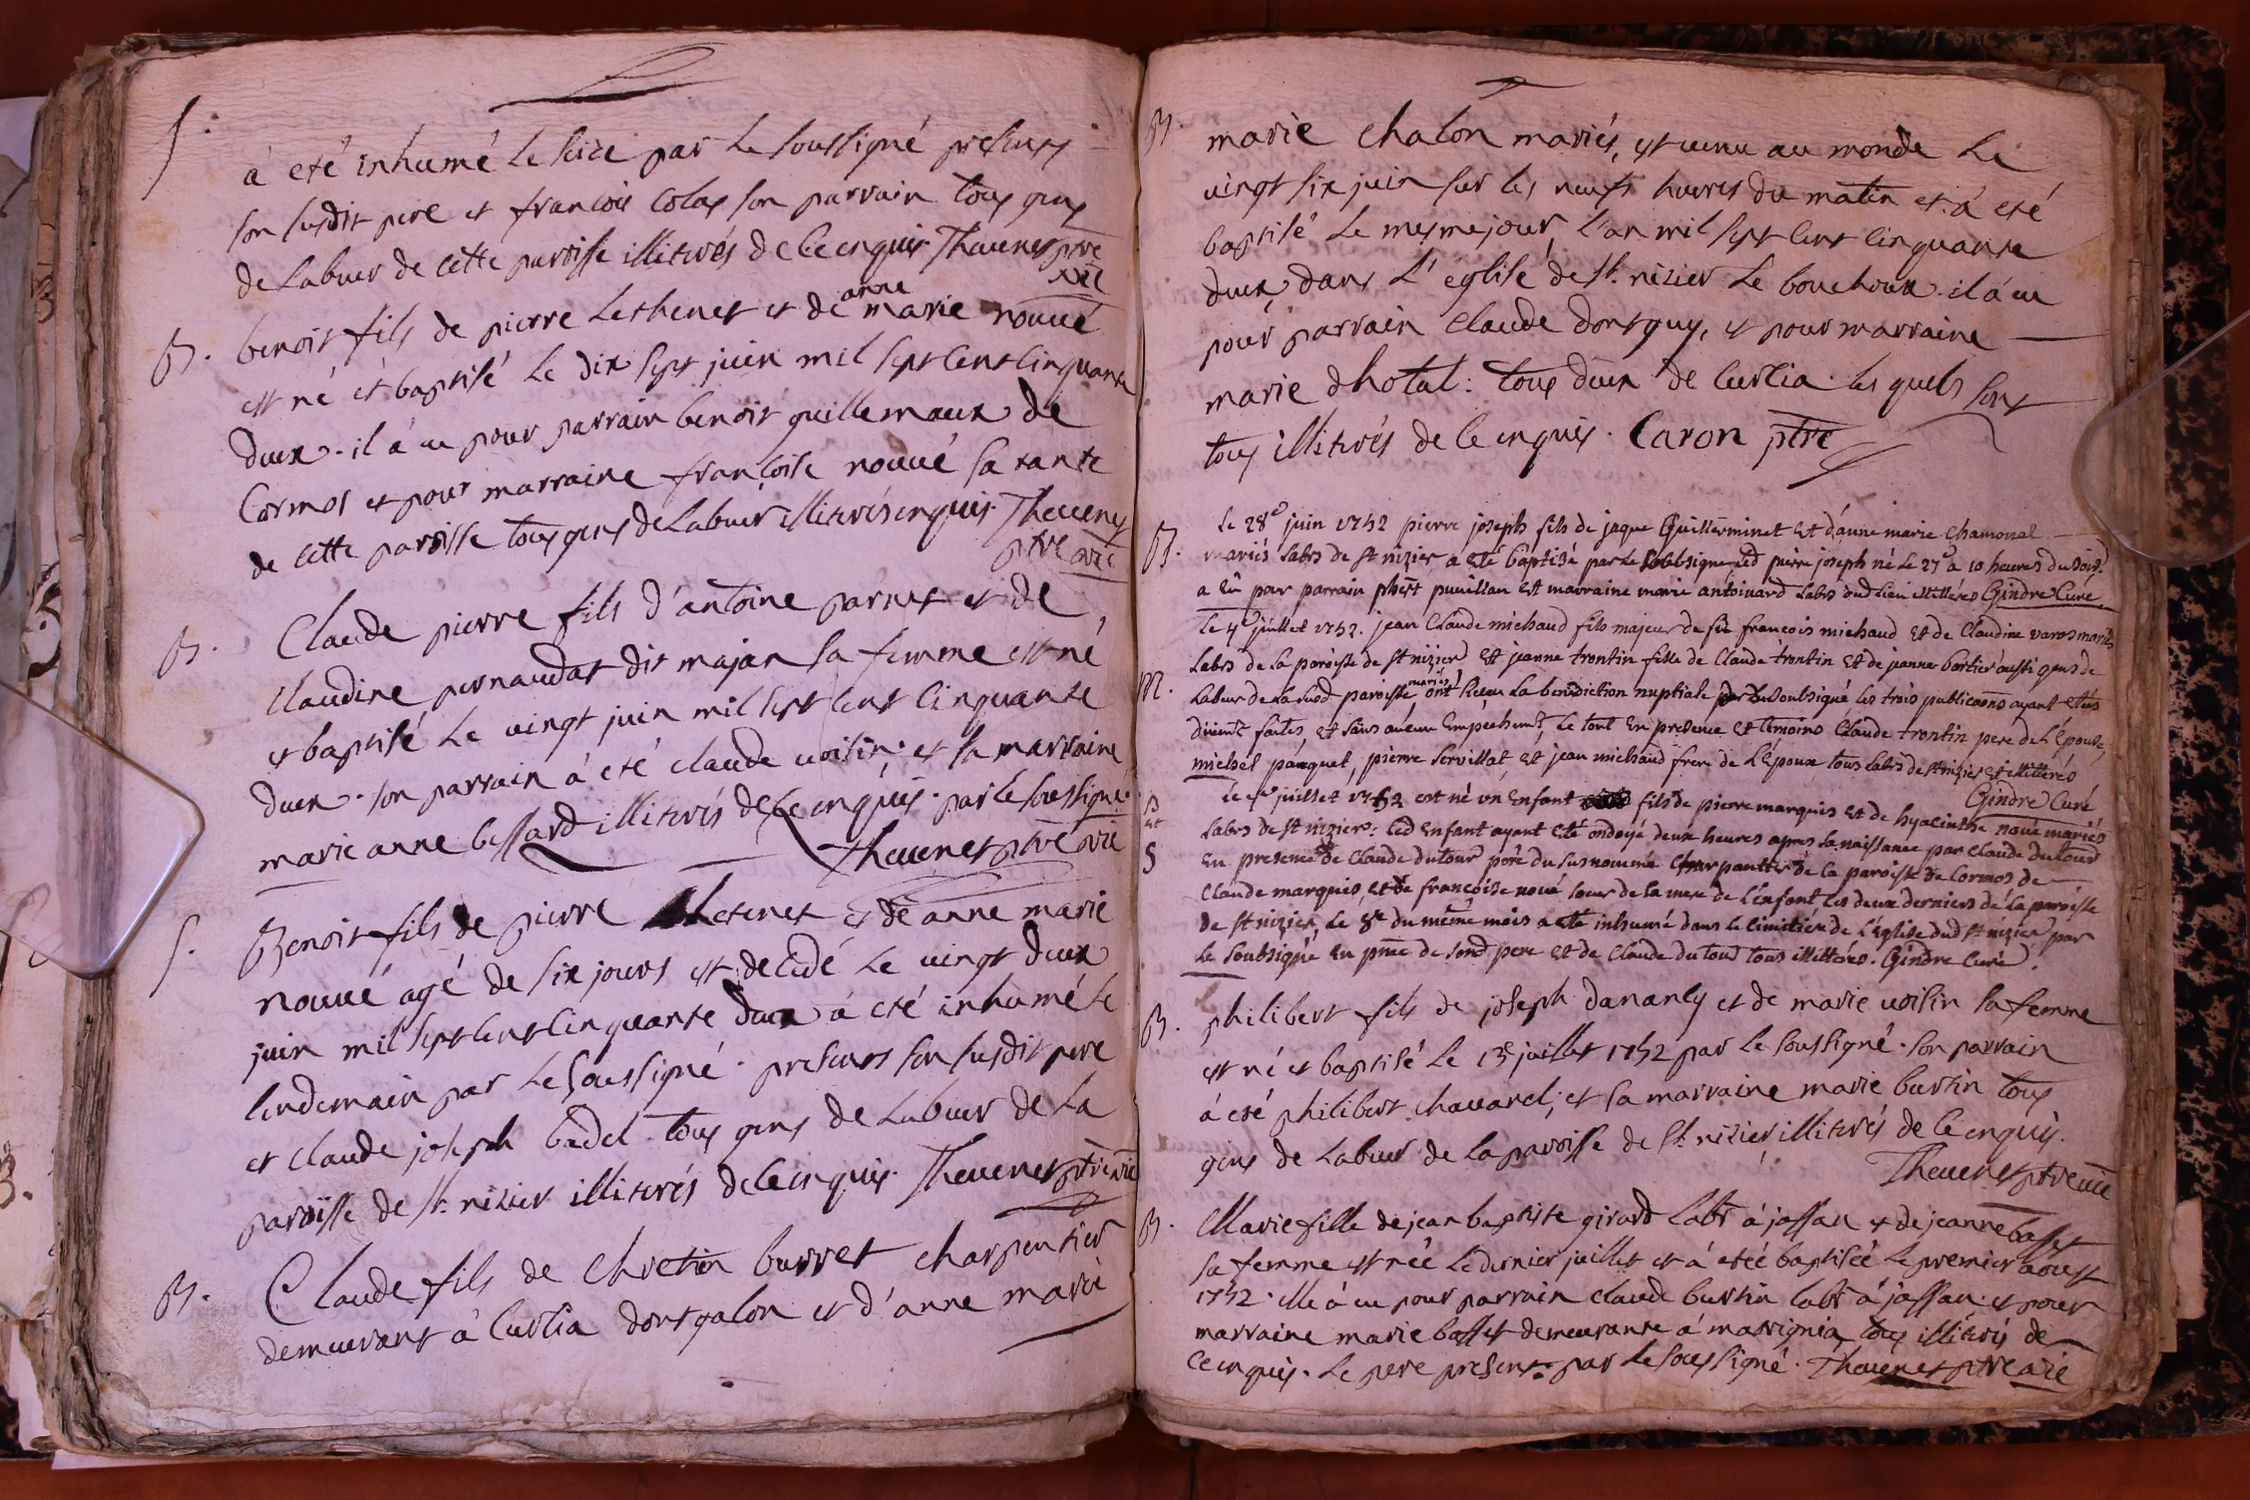 S.
à eté inhumé le seize par le soussigné presents
son susdit pere et francois Colas son parrain tous gens
de Labeur de cette paroisse illiterés de ce enquis. Thevenet ptre
vic
B. benoit fils de pierre Lethenet et de anne marie nouvé
est né et baptisé le dix sept juin mil sept cent cinquante
deux. il à eu pour parrain benoit guillemaux de
Cormos et pour marraine françoise nouvé sa tante
de cette paroisse tous gens de Labeur illiterés enquis. Thevenet
ptre vic
B. Claude pierre fils d'antoine parnet et de
claudine pernaudat dit majan sa femme est né,
et baptisé le vingt juin mil sept cent cinquante
deux. son parrain à eté claude voisin; et sa marraine
marie anne bessard illiterés de ce enquis. par le soussigné.
Thevenet ptre vic
S. Benoit fils de pierre Letenet et de anne marie
nouvé agé de six jours est decedé le vingt deux
juin mil sept cent cinquante deux à eté inhumé le
lendemain par le soussigné. presents son susdit pere
et claude joseph badel. tous gens de Labeur de la
paroisse de st. nizier illiterés de ce enquis. Thevenet ptre vic
B. Claude fils de Chretien burret charpentier
demeurant à Curtia dontgalon et d'anne marie
B. marie Chalon mariés, est venu au monde le
vingt six juin sur les neufs heures du matin et à eté
baptisé le mesme jour, l'an mil sept cent cinquante
deux, dans l'eglise de st. nizier le bouchoux. il à eu
pour parrain Claude dontguy, et pour marraine
marie dhotal: tous deux de Curtia. les quels sont
tous illiterés de ce enquis. Caron ptre
B. Le 28e juin 1752 pierre joseph fils de jaque Guillerminet et d'anne marie Chamonal
mariés labrs de st nizier a eté baptisé par le soubsigné led pierre joseph né le 27 à 10 heures du soir.
a eû pour parrain phert puvillan et marraine marie antoinard labrs dud lieu illitterés Gindre Curé
M. Le 4e juillet 1752. jean Claude michaud fils majeur de fû francois michaud et de Claudine varos mariés
labrs de la paroisse de st nizier et jeanne trontin fille de Claude trontin et de jeanne bertier aussi gens de
labeur de la susd paroisse mariés ont receu la benediction nuptiale par le soubsigné les trois publicaons ayant etés
duëmt faites, et sans aucun Empechemt, le tout en presence et temoins Claude trontin pere de l'épouse,
michel paquet, pierre servillat et jean michaud frere de L'Epoux tous labrs de st nizier et illitterés
Gindre Curé
B et S Le 7e juillet 1752 est né un enfant fils de pierre marquis et de hyacinthe noué mariés
labrs de st nizier. led enfant ayant eté ondoyé deux heures apres la naissance par Claude dutour
en presence de Claude dutour pere du susnommé charpantier de la paroisse de Cormos de
Claude marquis, et de francoise noué soeur de la mere de l'enfant les deux derniers de la paroisse
de st nizier, le 8e du même mois a eté inhumé dans le cimitiere de L'Eglise dud st nizier par
le soubsigné en pnce de sond pere et de Claude dutour tous illitterés. Gindre Curé.
B. philibert fils de joseph dananly et de marie voisin sa femme
est né et baptisé le 13e juillet 1752 par le soussigné. son parrain
à eté philibert chavanel; et sa marraine marie burtin tous
gens de labeur de la paroisse de st. nizier, illiterés de ce enquis.
Thevenet ptre vic
B. Marie fille de jean baptiste girard labr à jassan et de jeanne basset
sa femme est née le dernier juillet et à eteé baptiseé le premier aoust
1752. elle à eu pour parrain claude burtin labr à jassan. et pour
marraine marie basset demeurante à marvignia, tous illiterés de
ce enquis. Le pere present. par le soussigné. Thevenet ptre vic